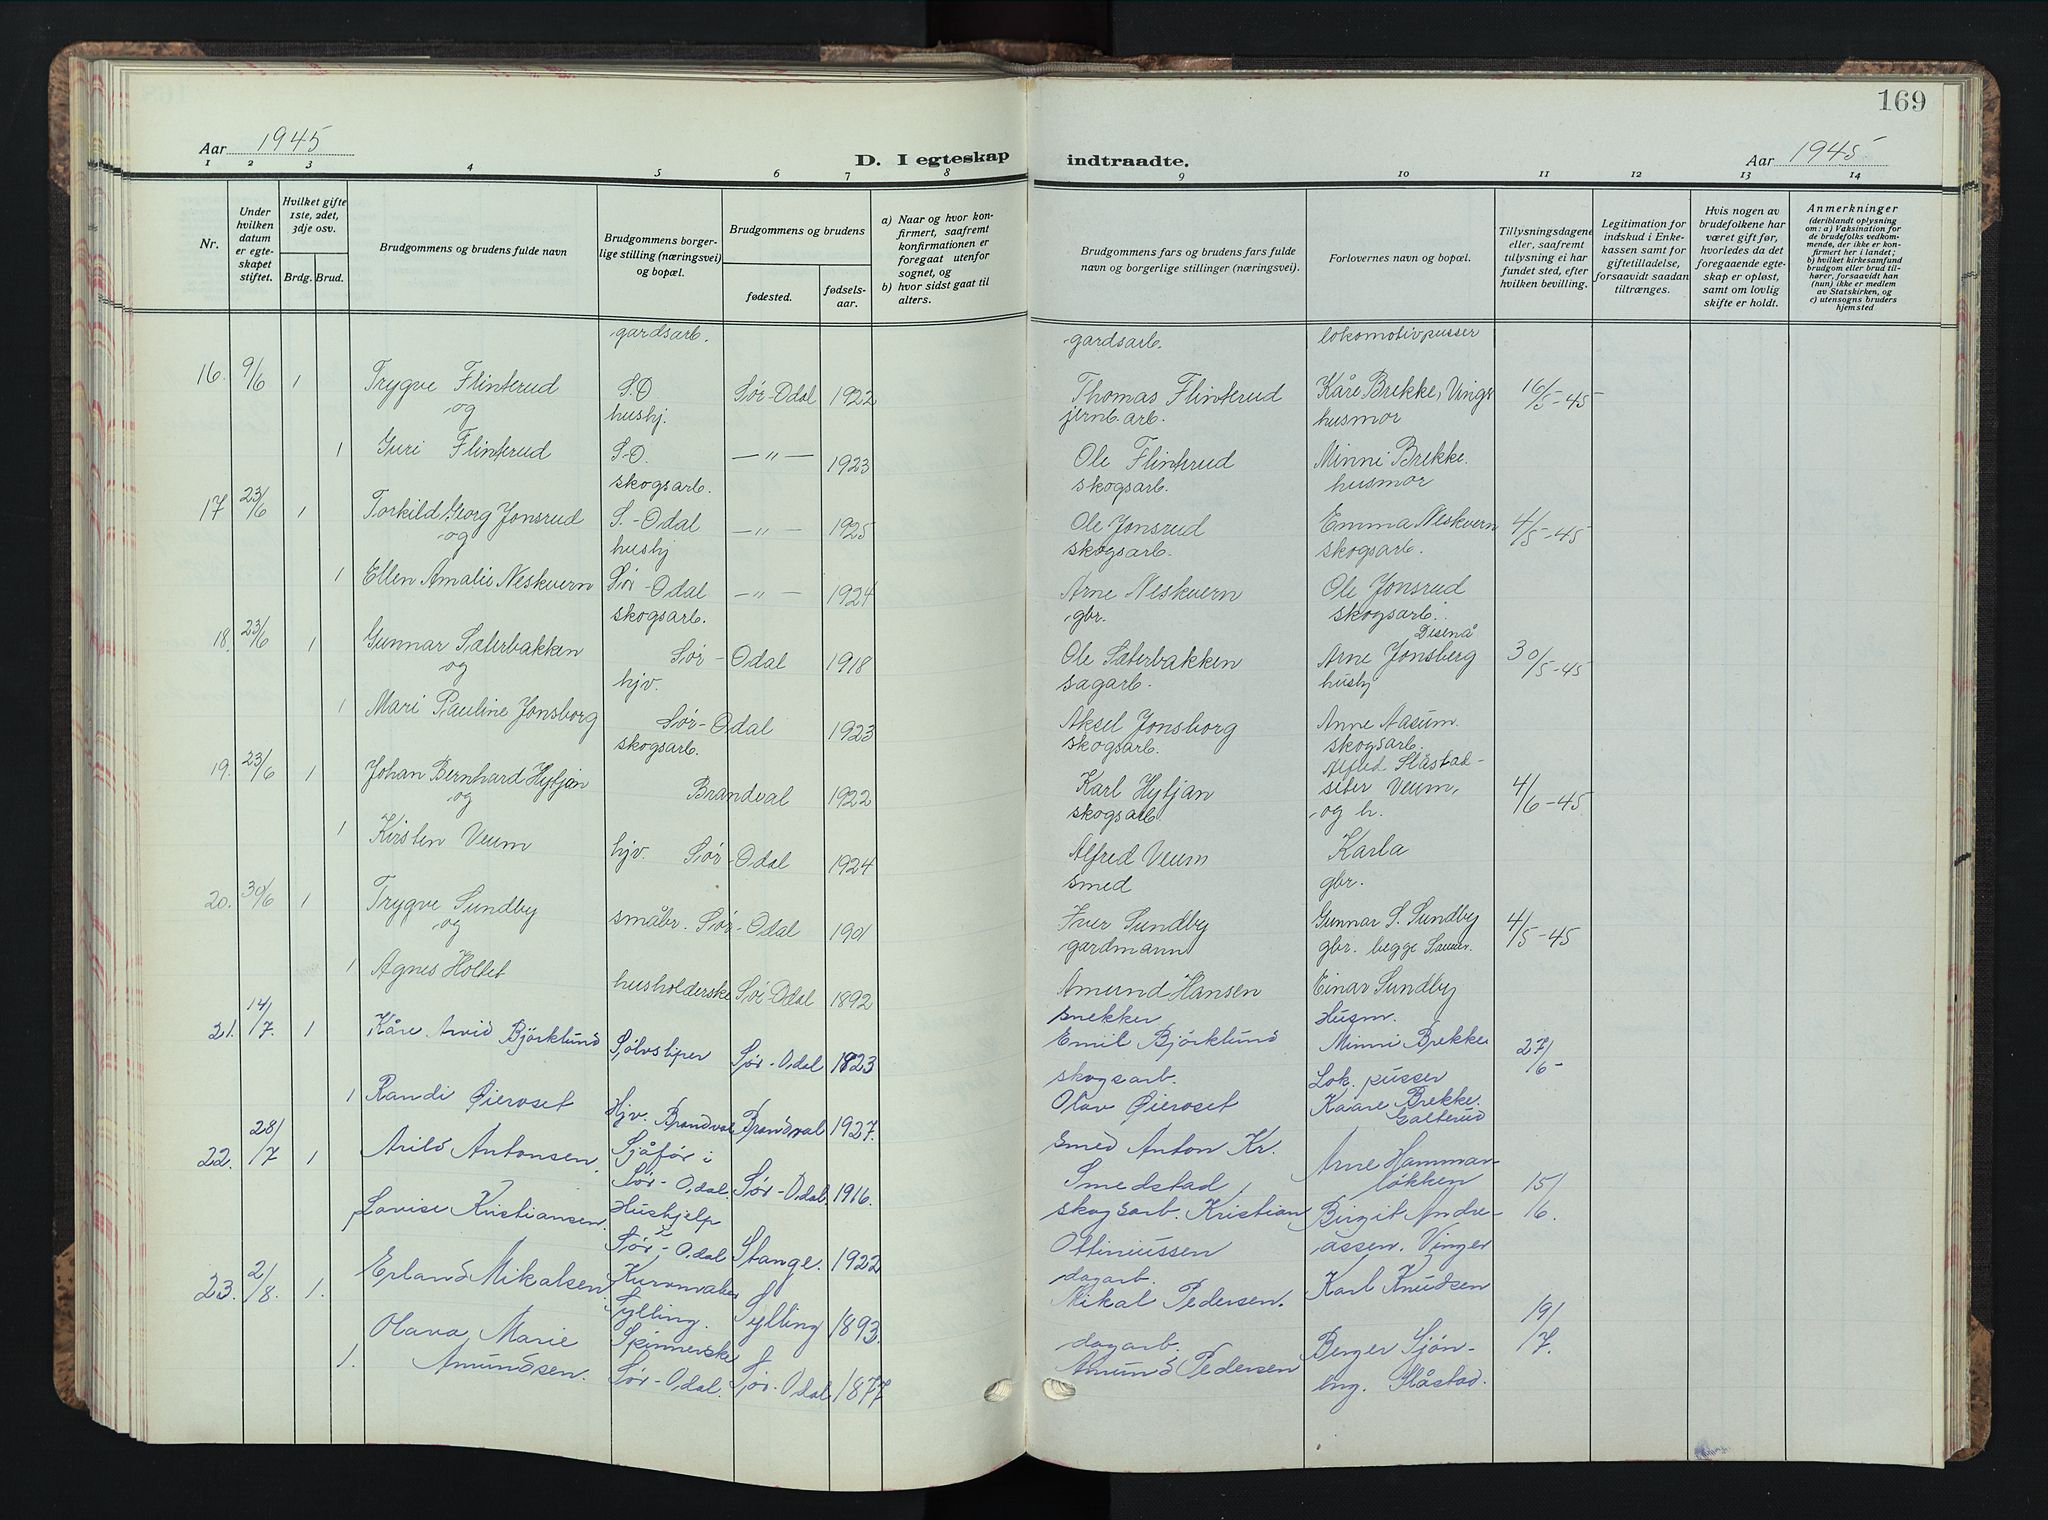 169
Aar 1945
D. I egteskap
indtraadte.
Aar 1945
1 2 3 4 5 6 7 8 9 10 11 12 13 14
Nr.
Under hvilken datum er egteskapet stiftet.
Hvilket gifte 1ste, 2det, 3dje osv.
Brdg. Brud.
Brudgommens og brudens fulde navn
Brudgommens borgerlige stilling (næringsvei) og bopæl.
Brudgommens og brudens
fødested.
fødselsaar.
a) Naar og hvor konfirmert, saafremt konfirmationen er foregaat utenfor sognet, og
b) hvor sidst gaat til alters.
Brudgommens fars og brudens fars fulde navn og borgerlige stillinger (næringsvei).
Forlovernes navn og bopæl.
Tillysningsdagene eller, saafremt tillysning ei har fundet sted, efter hvilken bevilling.
Legitimation for indskud i Enkekassen samt for giftetilladelse, forsaavidt saadan tiltrænges.
Hvis nogen av brudefolkene har været gift før, hvorledes da det foregaaende egteskap er opløst, samt om lovlig skifte er holdt.
Anmerkninger
(deriblandt oplysning om: a) Vaksination for de brudefolks vedkommende, der ikke er konfirmert her i landet; b) hvilket kirkesamfund brudgom eller brud tilhører, forsaavidt han (hun) ikke er medlem av Statskirken, og c) utensogns bruders hjemsted
gardsarb. gardsarb. lokomotivpusser
16. 9/6 1 Trygve Flinterud S.O. Sør-Odal 1922 Thomas Flinterud Kåre Brekke, Vinger 16/5-45
og hushj. jernb.arb. husmor
1 Guri Flinterud S.O. —"— 1923 Ole Flinterud Minni Brekke.
skogsarb. skogsarb. husmor
17 23/6 1 Torkild Georg Jonsrud S.-Odal —"— 1925 Ole Jonsrud Emma Neskvern 4/5-45
og hushj skogsarb. skogsarb.
1 Ellen Amalie Neskvern Sør-Odal —"— 1924 Arne Neskvern Ole Jonsrud
skogsarb. gbr. skogsarb.
Disenå
18. 23/6 1 Gunnar Sæterbakken Sør-Odal 1918 Ole Sæterbakken Arne Jonsberg 30/5-45
og hjv. sagarb. hushj
1 Mari Pauline Jonsborg Sør-Odal 1923 Aksel Jonsborg Anne Aasum.
skogsarb. skogsarb. skogsarb.
Alfred Slåstad-
19. 23/6 1 Johan Bernhard Hytjan Brandval 1922 Karl Hytjan seter Veum, 4/6-45
og skogsarb og h.
1 Kirsten Veum hjv. Sør-Odal 1924 Alfred Veum Karla
smed gbr.
20. 30/6 1 Trygve Sundby småbr. Sør-Odal 1901 Iver Sundby Gunnar S. Sundby 4/5-45
og gardmann gbr. begge Sander.
1 Agnes Holtet husholderske Sør-Odal 1892 Amund Hansen Einar Sundby
snekker Husm.
21. 14/7. 1 Kåre Arvid Björklund Sølvsliper Sør-Odal 1823 Emil Björklund Minni Brekke 27/6-
skogsarb. Lok. pusser
1 Randi Øieroset Hjv. Brandval Brandval 1927. Olav Øieroset Kaare Brekke.
Galterud
22. 28/7 1 Arild Antonsen. Sjåfør i smed Anton Kr. Arne Hamman-
Sør-Odal Sør-Odal. 1916. Smedstad, løkken 15/
Lovise Kristiansen. Hushjelp skogsarb. Kristian Birgit Andre- 16.
Sør-Odal Stange. 1922 Ottiniussen assen. Vinger
dagarb.
23. 2/8. 1. Erland Mikalsen. Kurvmaker Mikal Pedersen. Karl Knudsen
Sylling. Sylling 1893. 19/
Olava Marie Spinnerske dagarb. Berger Sjön- 7.
1. Amundsen. Sør-Odal. Sør-Odal 1877 Amund Pedersen eng. Slåstad.